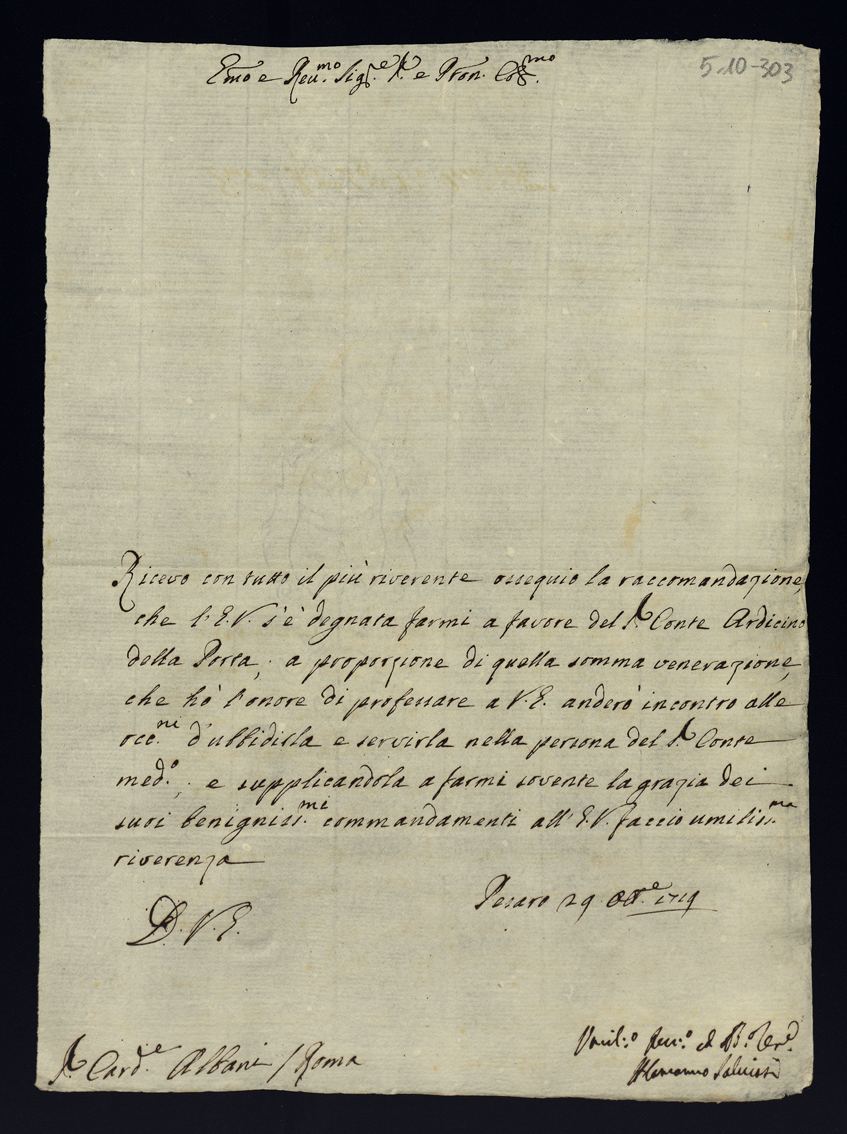 Em̃o e Reu.mo Sig.re P.re e Pron. Col.mo
5.10-303
Ricevo con tutto il più riverente ossequio la raccomandazione,
che l'E.V. s'è degnata farmi a favore del S.r Conte Ardicino
della Porta; a proporzione di quella somma venerazione,
che hò l'onore di professare a V.E. anderò incontro alle
occ.ni d'ubbidirla e servirla nella persona del S.r Conte
med.o; e supplicandola a farmi sovente la grazia dei
suoi benigniss.mi commandamenti all'E.V. faccio umiliss.ma
riverenza
Pesaro 29 Ott.e 1719
D. V. E.
S.r Card.e Albani / Roma
Umil.o Deu.o ed
Salviati